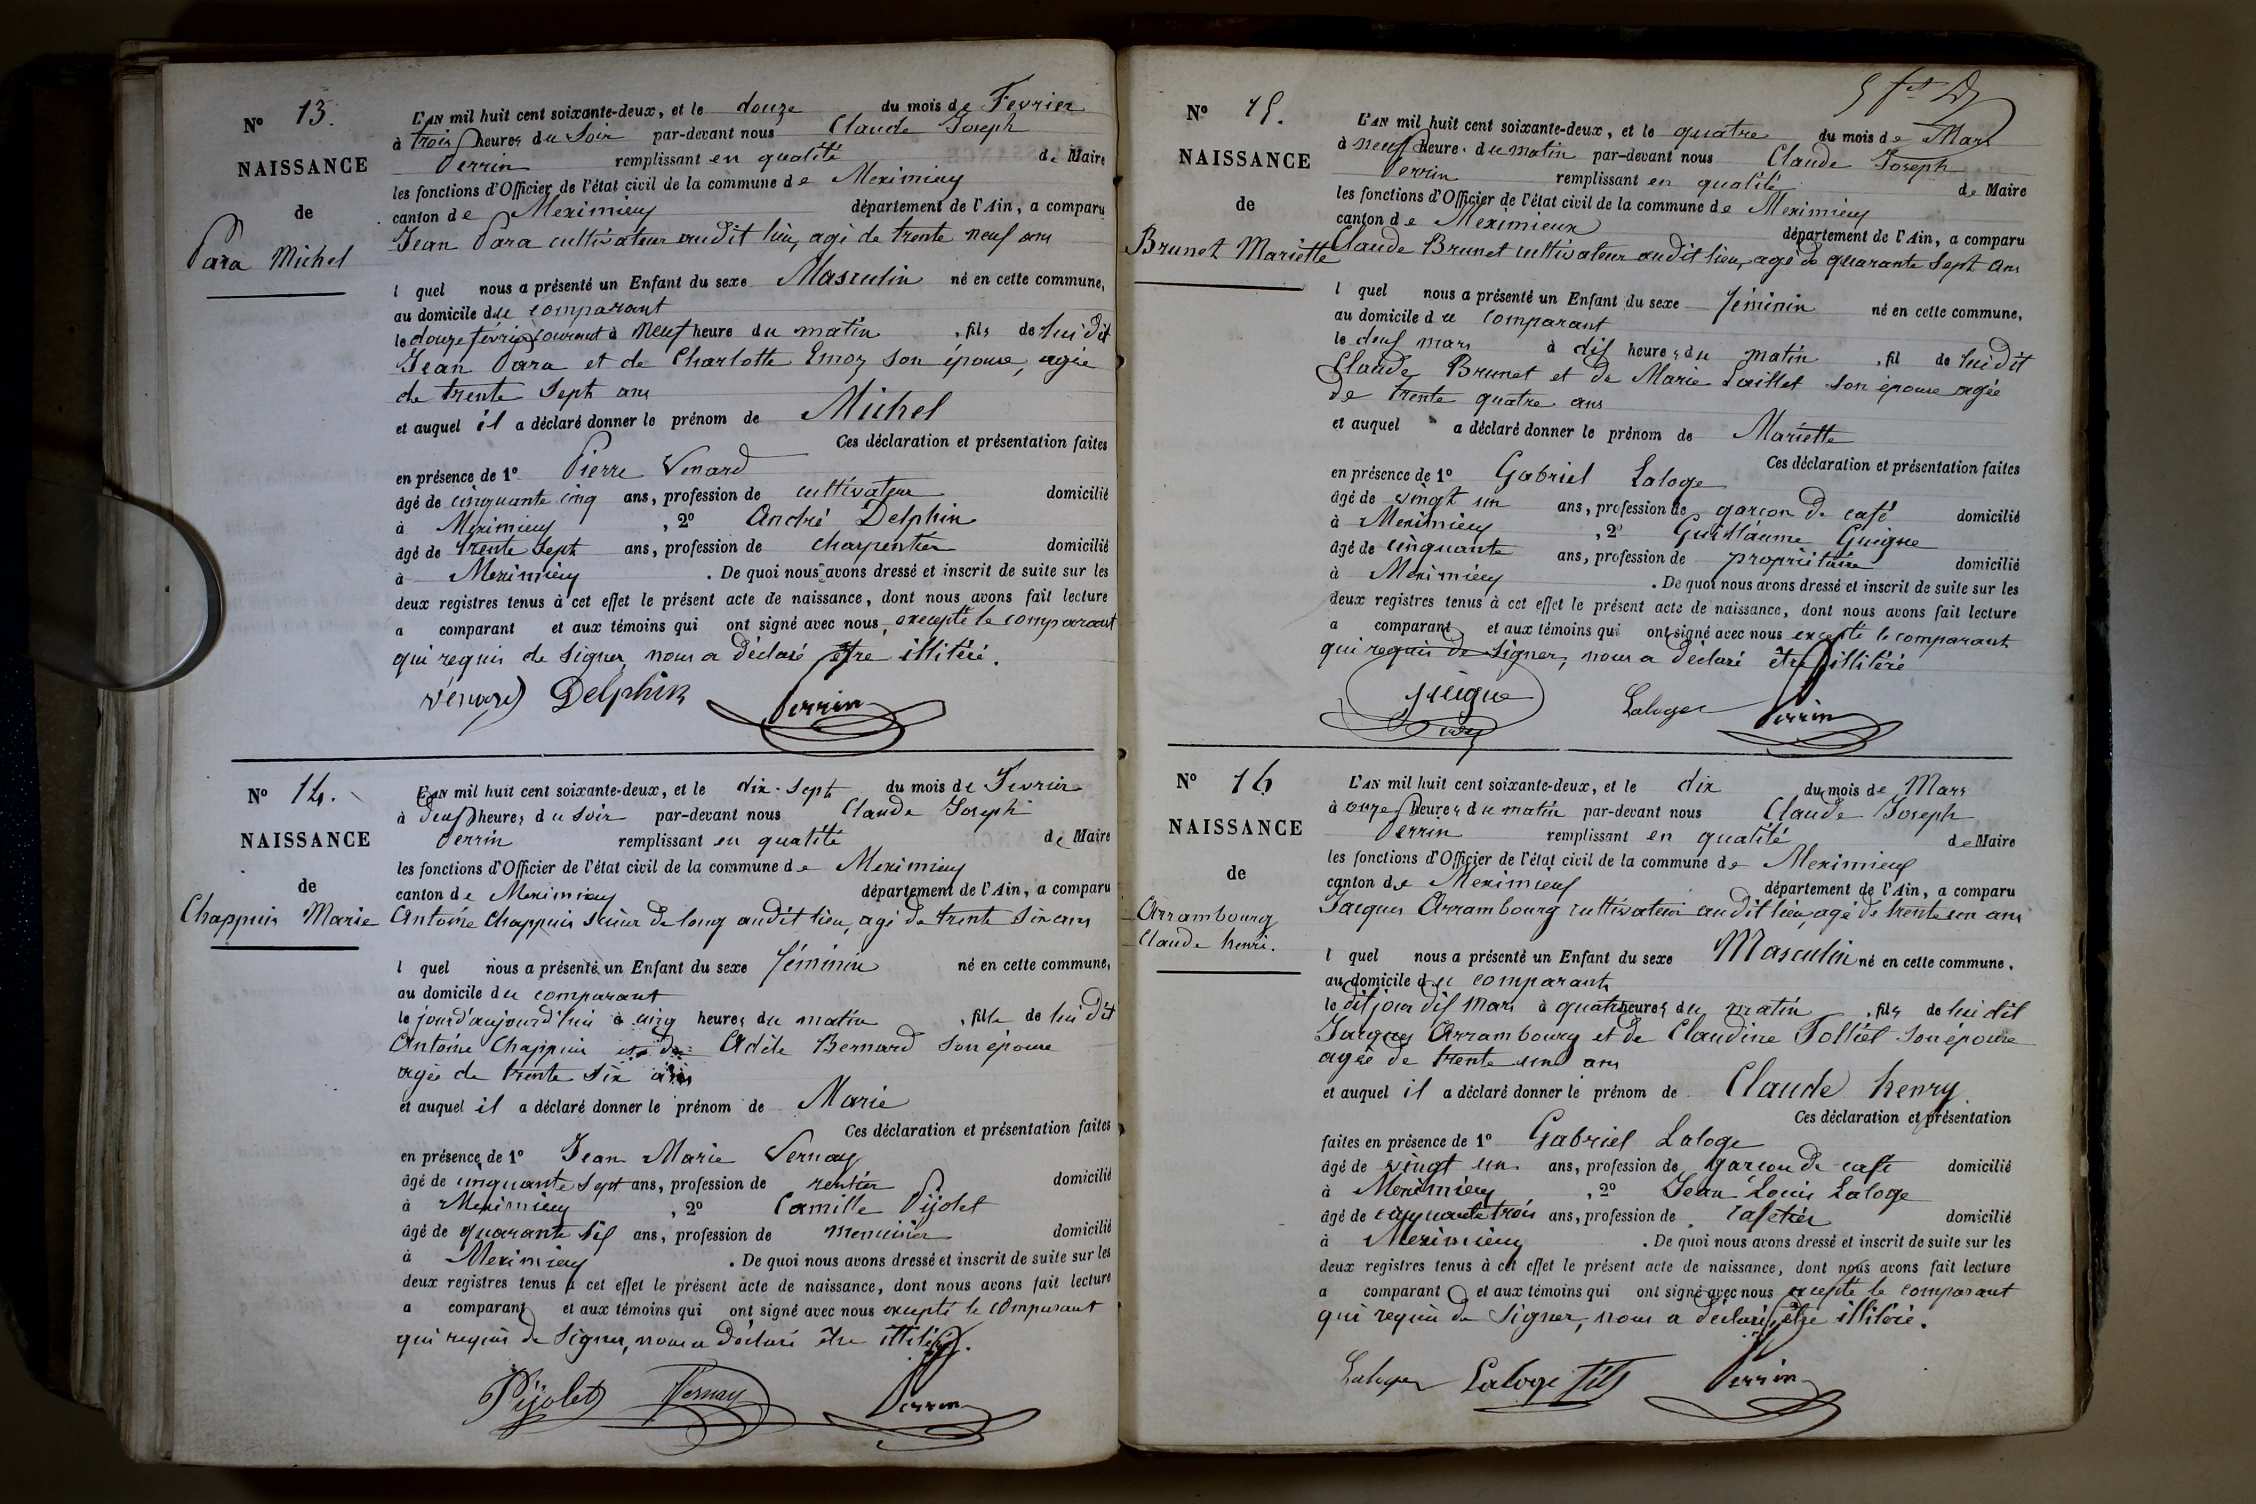 N° 13.
NAISSANCE
de
Para Michel
L'AN mil huit cent soixante-deux, et le douze du mois de Fevrier
à trois heures du Soir par-devant nous Claude Joseph
Perrin remplissant en qualité de Maire
les fonctions d'Officier de l'état civil de la commune de Meximieux
canton de Meximieux département de l'Ain, a comparu
Jean Para cultivateur audit lieu, agé de trente neuf ans
l quel nous a présenté un Enfant du sexe Masculin né en cette commune,
au domicile du comparant
le douze février courant à neuf heure du matin , fils de lui dit
Jean Para et de Charlotte Emoz son épouse, agée
de trente sept ans
et auquel il a déclaré donner le prénom de Michel
Ces déclaration et présentation faites
en présence de 1° Pierre Venard
âgé de cinquante cinq ans, profession de cultivateur domicilié
à Meximieux , 2° André Delphin
âgé de trente sept ans, profession de charpentier domicilié
à Meximieux . De quoi nous avons dressé et inscrit de suite sur les
deux registres tenus à cet effet le présent acte de naissance, dont nous avons fait lecture
a comparant et aux témoins qui ont signé avec nous, excepté le comparant
qui requis de signer, nous a déclaré être illitéré.
Venard Delphin Perrin
N° 14.
NAISSANCE
de
Chappuis Marie
L'AN mil huit cent soixante-deux, et le dix-sept du mois de Fevrier
à deux heures du soir par-devant nous Claude Joseph
Perrin remplissant en qualité de Maire
les fonctions d'Officier de l'état civil de la commune de Meximieux
canton de Meximieux département de l'Ain, a comparu
Antoine Chappuis scieur de long audit lieu, agé de trente six ans
l quel nous a présenté un Enfant du sexe féminin né en cette commune,
au domicile du comparant
le jourd'aujourd'hui à cinq heures du matin , fille de lui dit
Antoine Chappuis et de Adèle Bernard son épouse
agée de trente six ans
et auquel il a déclaré donner le prénom de Marie
Ces déclaration et présentation faites
en présence de 1° Jean Marie Vernay
âgé de cinquante sept ans, profession de rentier domicilié
à Meximieux , 2° Camille Pijolet
âgé de quarante six ans, profession de menuisier domicilié
à Meximieux . De quoi nous avons dressé et inscrit de suite sur les
deux registres tenus à cet effet le présent acte de naissance, dont nous avons fait lecture
a comparant et aux témoins qui ont signé avec nous excepté le comparant
qui requis de signer, nous a déclaré être illitéré.
Pijolet Vernay Perrin
N° 15.
NAISSANCE
de
Brunet Mariette
L'AN mil huit cent soixante-deux, et le quatre du mois de Mars
à neuf heure. du matin par-devant nous Claude Joseph
Perrin remplissant en qualité de Maire
les fonctions d'Officier de l'état civil de la commune de Meximieux
canton de Meximieux département de l'Ain, a comparu
Claude Brunet cultivateur audit lieu, agé de quarante sept ans
l quel nous a présenté un Enfant du sexe féminin né en cette commune,
au domicile du comparant
le deux mars à dix heures du matin , fil de lui dit
Claude Brunet et de Marie Laillet son épouse agée
de trente quatre ans
et auquel a déclaré donner le prénom de Mariette
Ces déclaration et présentation faites
en présence de 1° Gabriel Laloge
âgé de vingt un ans, profession de garcon de café domicilié
à Meximieux , 2° Guillaume Guigue
âgé de cinquante ans, profession de propriétaire domicilié
à Meximieux . De quoi nous avons dressé et inscrit de suite sur les
deux registres tenus à cet effet le présent acte de naissance, dont nous avons fait lecture
a comparant et aux témoins qui ont signé avec nous excepté le comparant
qui requis de signer, nous a déclaré être illitéré
Guigue Laloge Perrin
N° 16
NAISSANCE
de
Arrambourg
Claude henri.
L'AN mil huit cent soixante-deux, et le dix du mois de Mars
à onze heures du matin par-devant nous Claude Joseph
Perrin remplissant en qualité de Maire
les fonctions d'Officier de l'état civil de la commune de Meximieux
canton de Meximieux département de l'Ain, a comparu
Jacques Arrambourg cultivateur audit lieu, agé de trente un ans
l quel nous a présenté un Enfant du sexe Masculin né en cette commune,
au domicile du comparant
le dit jour dix mars à quatre heures du matin , fils de lui dit
Jacques Arrambourg et de Claudine Folliet son épouse
agée de trente un ans
et auquel il a déclaré donner le prénom de Claude henry
Ces déclaration et présentation
faites en présence de 1° Gabriel Laloge
âgé de vingt un ans, profession de garcon de café domicilié
à Meximieux , 2° Jean Louis Laloge
âgé de cinquante trois ans, profession de cafetier domicilié
à Meximieux . De quoi nous avons dressé et inscrit de suite sur les
deux registres tenus à cet effet le présent acte de naissance, dont nous avons fait lecture
a comparant et aux témoins qui ont signé avec nous excepté le comparant
qui requis de signer, nous a déclaré être illitéré.
Laloge Laloge fils Perrin